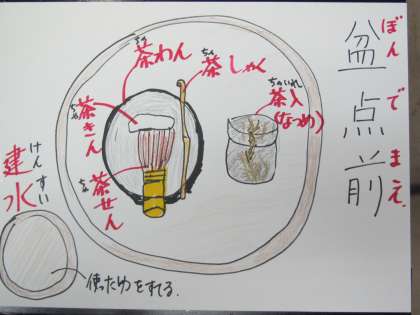 盆点前
ぼんでまえ
茶わん
ちゃ
茶しゃく
ちゃ
茶入
ちゃいれ
(なつめ)
茶きん
ちゃ
茶せん
ちゃ
建水
けんすい
使ったゆをすてる.